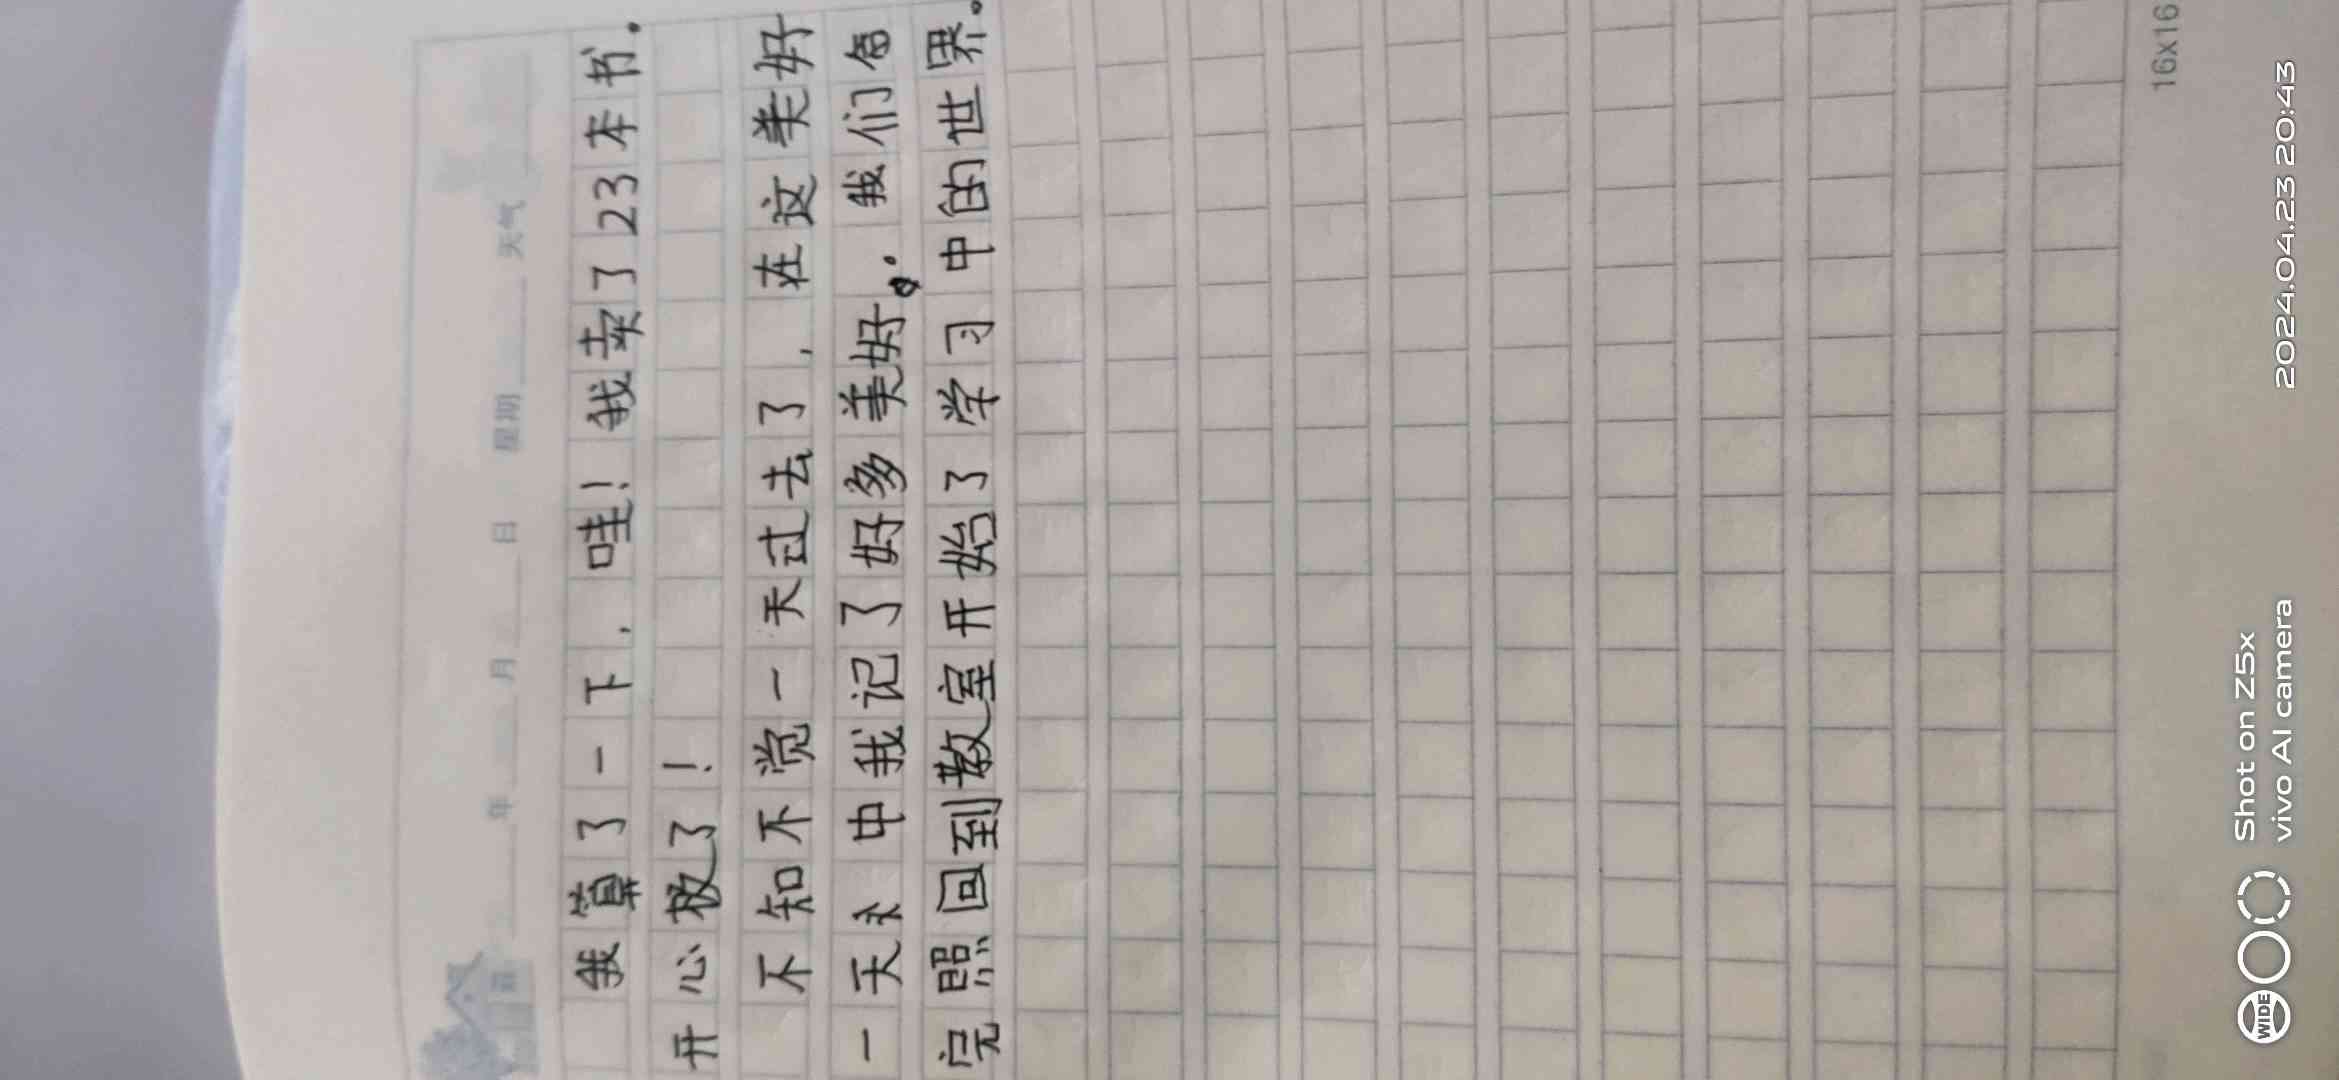 年 月 日 星期 天气
我算了一下，哇！我卖了23本书。
开心极了！
不知不觉一天过去了，在这美好
一天永中我记了好多美好。我们合
完照回到教室开始了学习中的世界。
16x16
WIDE
Shot on Z5x
vivo AI camera
2024.04.23 20:43